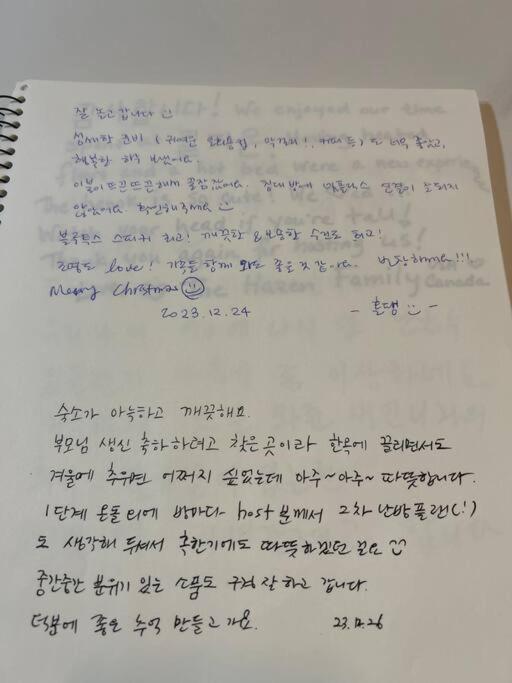 잘 놀고 갑니다
섬세한 준비 (귀여운 와용컵, 막걸리!, 커피 등) 도 너무 좋았고,
행복한 하루 보냈어요
이불이 뜨끈뜨끈해서 꿀잠 잤어요. 건대방에 와이 연결이 잘되지
않았어요. 확인해주세요
블루투스 스피커 최고! 깨끗한 & 뽀송한 수건도 최고!
조명도 love! 가족들 함께 와도 좋을 것 같아요. 번창하세요!!!
Merry Christmas
2023.12.24 - 흔댕 -
숙소가 아늑하고 깨끗해요.
부모님 생신 축하하려고 찾은 곳이라 한옥에 끌리면서도
겨울에 추우면 어쩌지 싶었는데 아주~아주~ 따뜻합니다.
1단계 온돌 외에 방마다 host 분께서 2차 난방플랜(!)
도 생각해 두셔서 혹한기에도 따뜻하겠던 걸요
중간중간 분위기 있는 소품도 구경 잘 하고 갑니다.
덕분에 좋은 추억 만들고 가요. 23.12.26